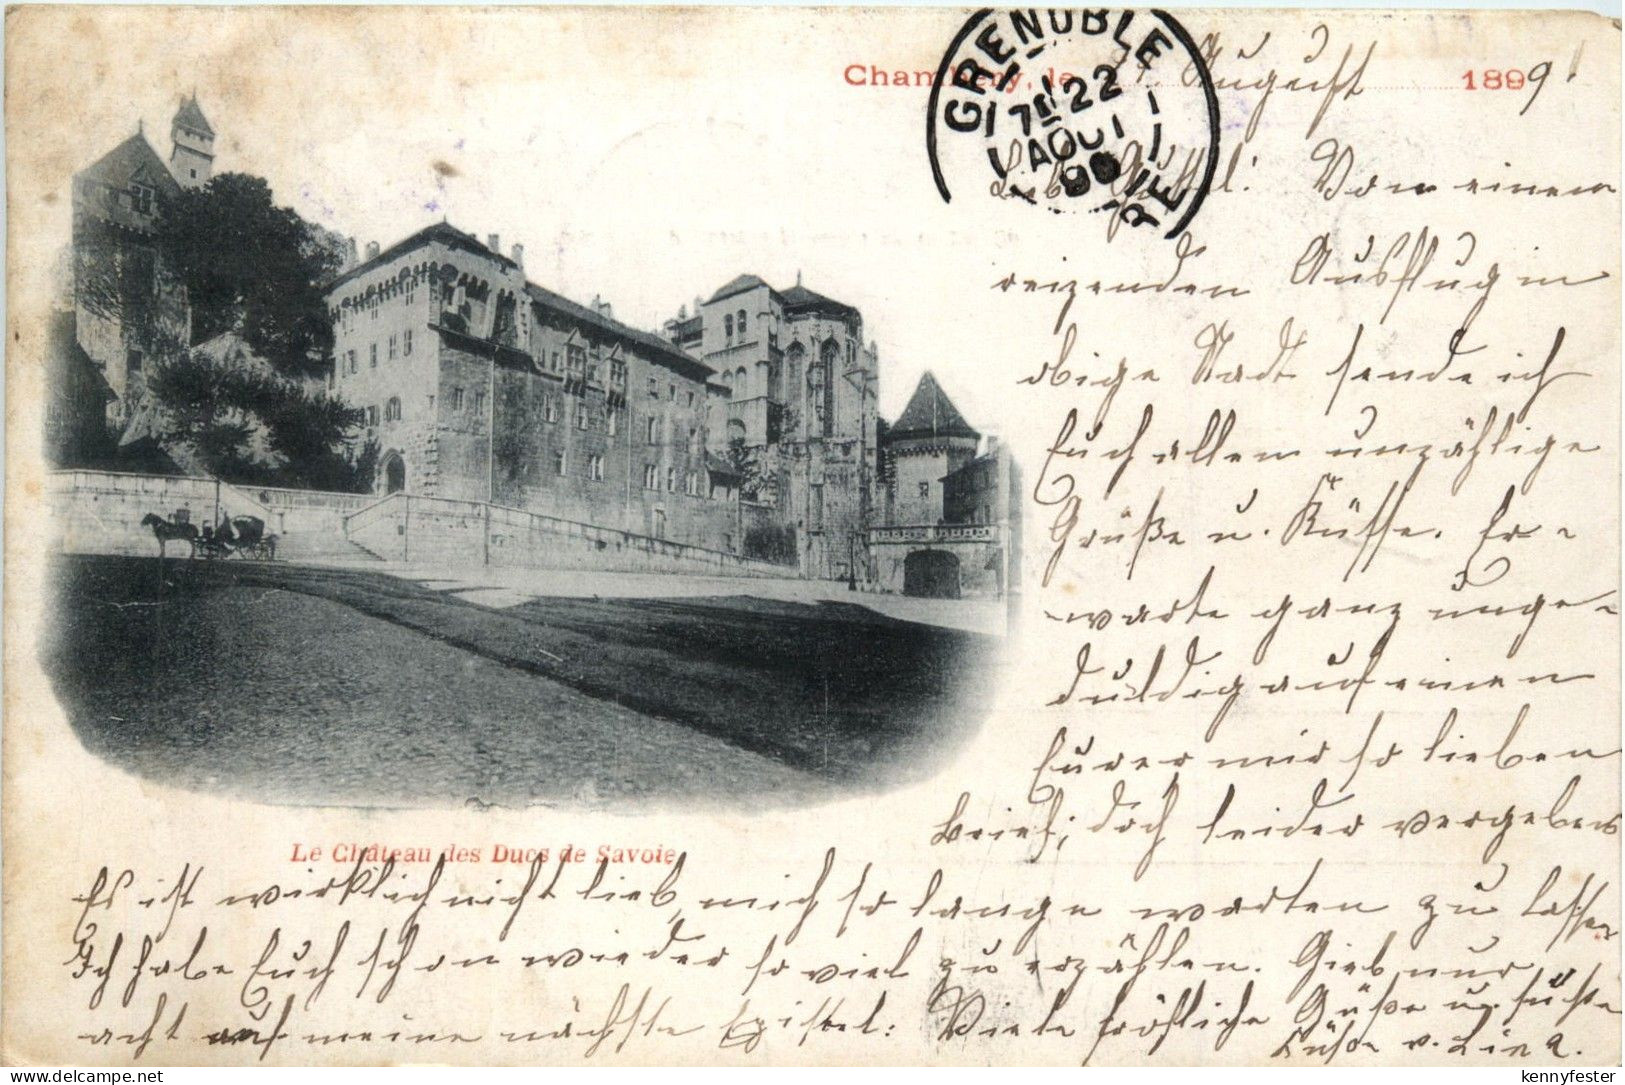 GRENOBLE
7E 22
AOUT
99
ISERE
Chambéry, le August 1899.
Von einem
reizenden Ausflug in
obige Stadt sende ich
Euch allem unzählige
Grüße u. Küsse. Er-
warte ganz unge-
duldig auf einen
Eurer mir so lieben
Brief; doch leider vergebens
Le Château des Ducs de Savoie
Es ist wirklich nicht lieb, mich so lange warten zu lassen
Ich habe Euch schon wieder so viel zu erzählen. Gieb nur
acht auf meine nächste Epistel: Viele fröhliche Grüße u. süße
Küsse v. Lina.
kennyfester